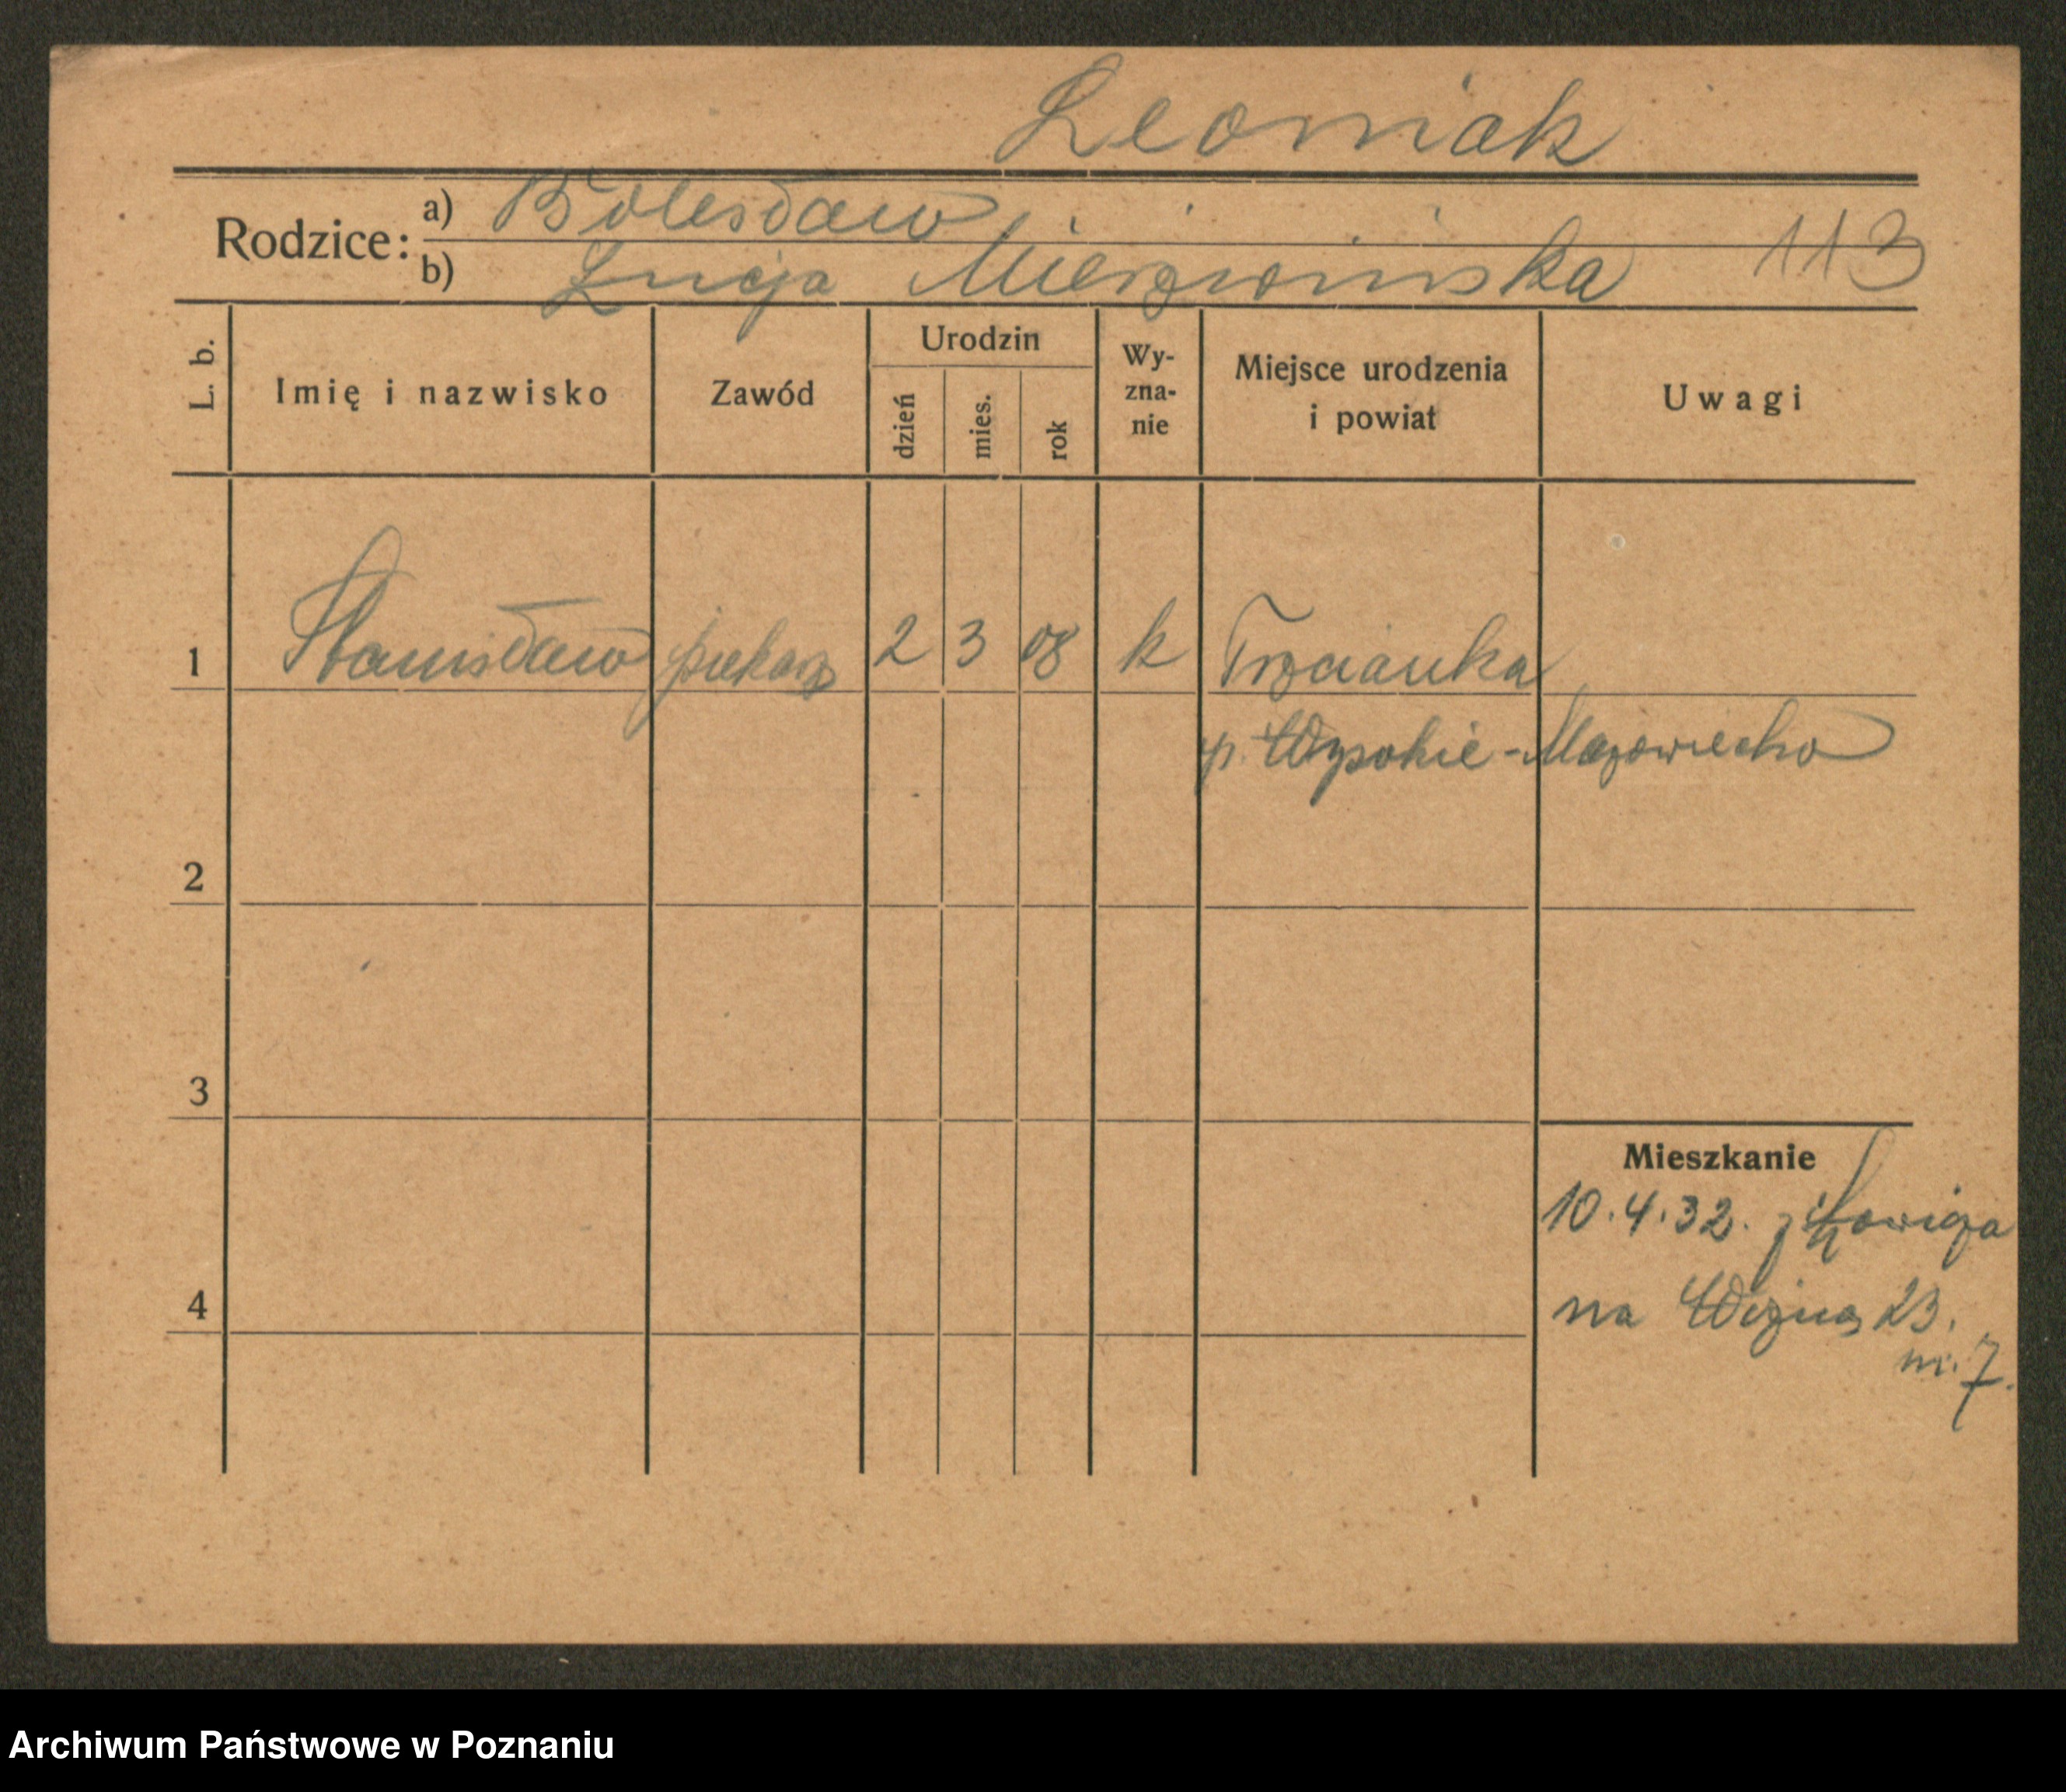 Leoniak
Rodzice: a) Bolesław
b) Łucja Mierzwińska 113
L. b. Imię i nazwisko Zawód Urodzin dzień mies. rok Wy-zna-nie Miejsce urodzenia i powiat Uwagi
1 Stanisław piekarz 2 3 08 k Trzcianka
p. Wysokie-Mazowiecko
2
3
Mieszkanie
10.4.32. z
4 na 23.
m. 7.
Archiwum Państwowe w Poznaniu